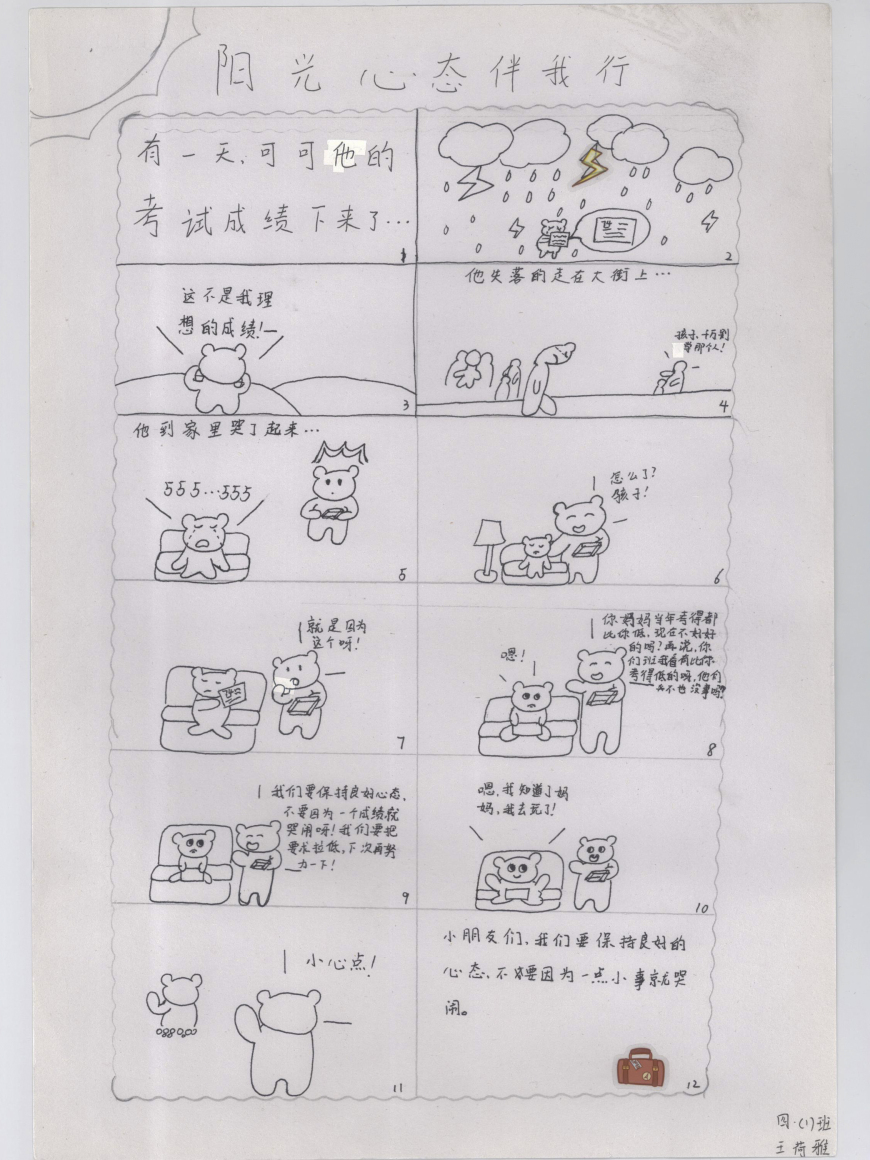 阳光心态伴我行
有一天、可可他的
考试成绩下来了…
1
2
这不是我理
想的成绩!
3
他失落的走在大街上…
孩子、千万别
学那个人!
4
他到家里哭了起来…
555…555
5
怎么了?
孩子!
6
就是因为
这个呀!
7
嗯!
你妈妈当年考得都
比你低,现在不好好
的吗?再说,你
们班我看有比你
考得低的呀,他们
不也没事吗?
8
我们要保持良好心态,
不要因为一个成绩就
哭闹呀!我们要把
要求拉低,下次再努
力一下!
9
嗯,我知道了妈
妈,我去玩了!
10
小心点!
11
小朋友们、我们要保持良好的
心态、不要因为一点小事就哭
闹。
12
四·(1)班
王荷雅